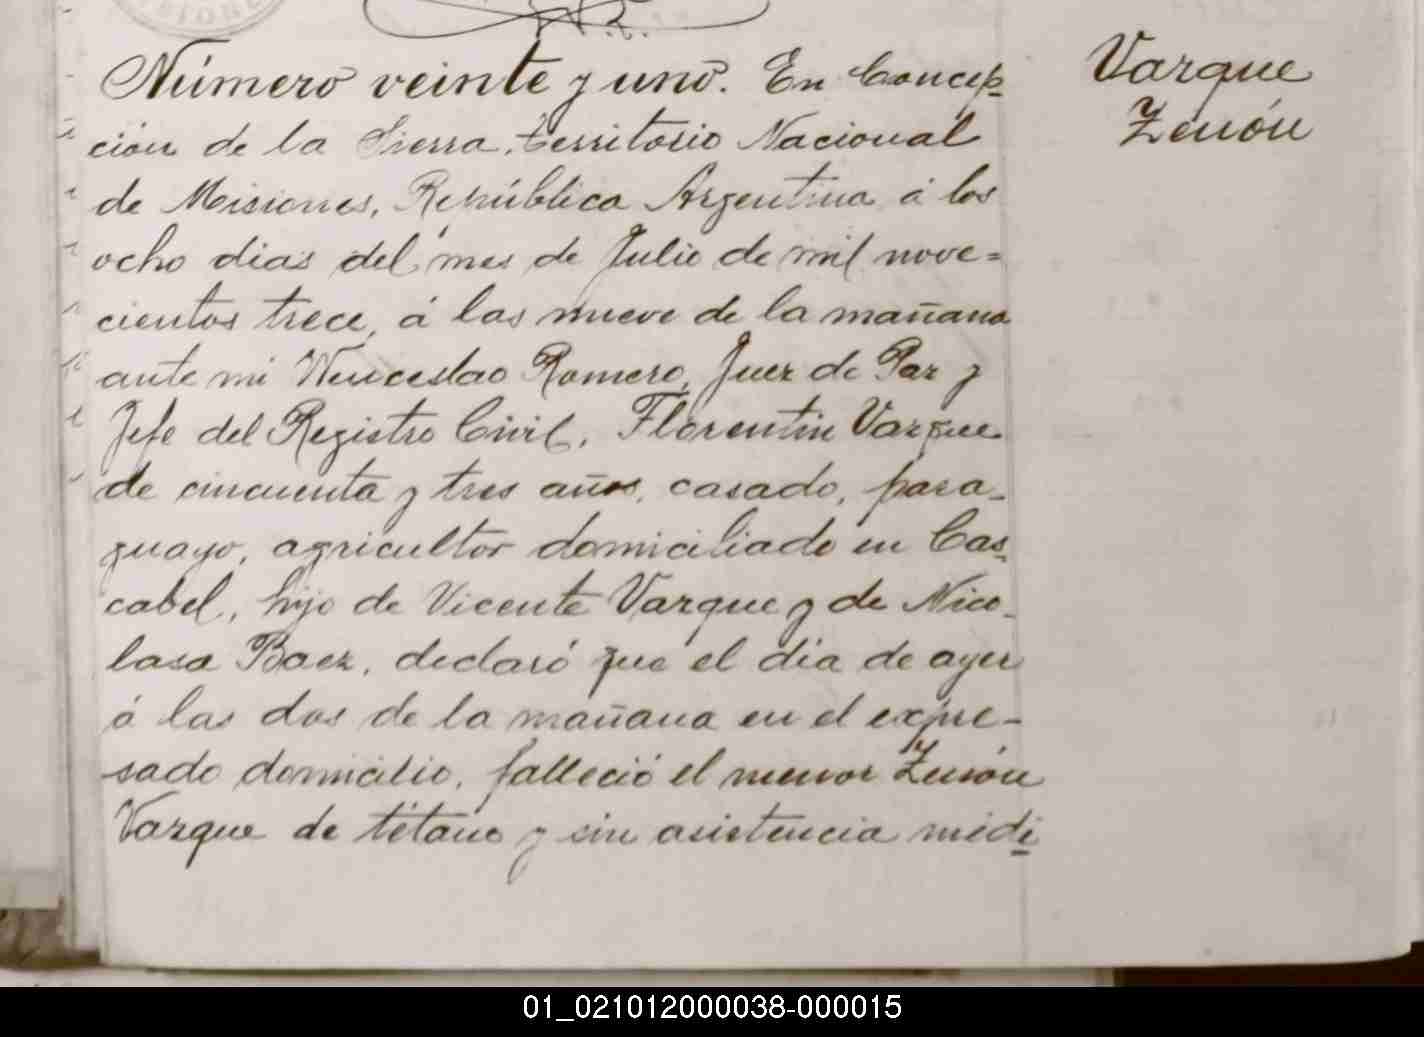 Número veinte y uno. En Concep-
ción de la Sierra, territorio Nacional
de Misiones, República Argentina á los
ocho dias del mes de Julio de mil nove=
cientos trece, á las nueve de la mañana
ante mi Wenceslao Romero, Juez de Paz y
Jefe del Registro Civil, Florentin Varque
de cincuenta y tres años, casado, para-
guayo, agricultor domiciliado en Cas-
cabel, hijo de Vicente Varque y de Nico-
lasa Baez, declaró que el dia de ayer
á las dos de la mañana en el expre-
sado domicilio, falleció el menor Zenón
Varque de tétano y sin asistencia médi
Varque
Zenón
01_021012000038-000015